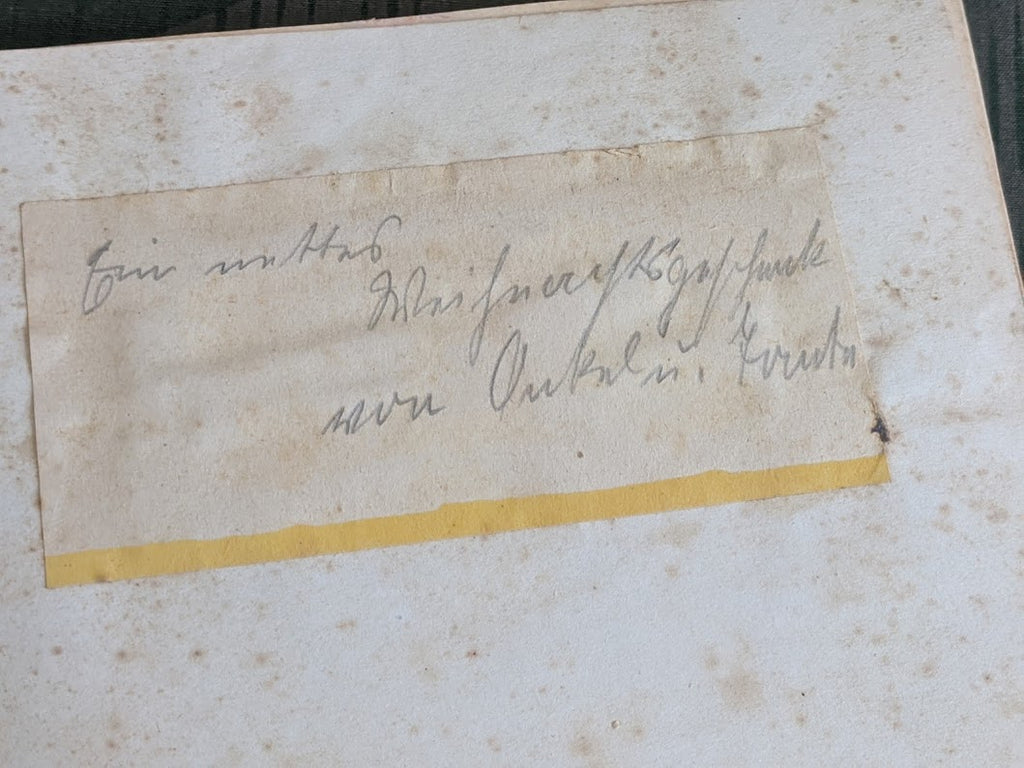 Ein nettes
Weihnachtsgeschenk
von Onkel u. Tante